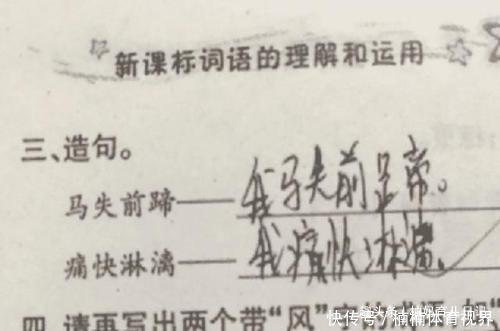 新课标词语的理解和运用
三、造句。
马失前蹄——我马失前蹄。
痛快淋漓——我痛快淋漓。
四、请再写出两个带“风”字的
快传号 楠楠体育视界